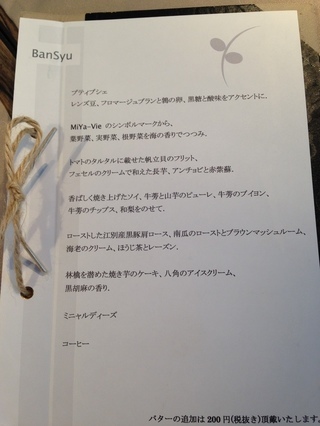 BanSyu
プティプシェ
レンズ豆、フロマージュブランと鶉の卵、黒糖と酸味をアクセントに.
MiYa-Vie のシンボルマークから、
葉野菜、実野菜、根野菜を海の香りでつつみ.
トマトのタルタルに載せた帆立貝のフリット、
フェセルのクリームで和えた長芋、アンチョビと赤紫蘇.
香ばしく焼き上げたソイ、牛蒡と山芋のピューレ、牛蒡のブイヨン、
牛蒡のチップス、和梨をのせて.
ローストした江別産黒豚肩ロース、南瓜のローストとブラウンマッシュルーム、
海老のクリーム、ほうじ茶とレーズン.
林檎を潜めた焼き芋のケーキ、八角のアイスクリーム、
黒胡麻の香り.
ミニャルディーズ
コーヒー
バターの追加は 200 円(税抜き)頂戴いたします。